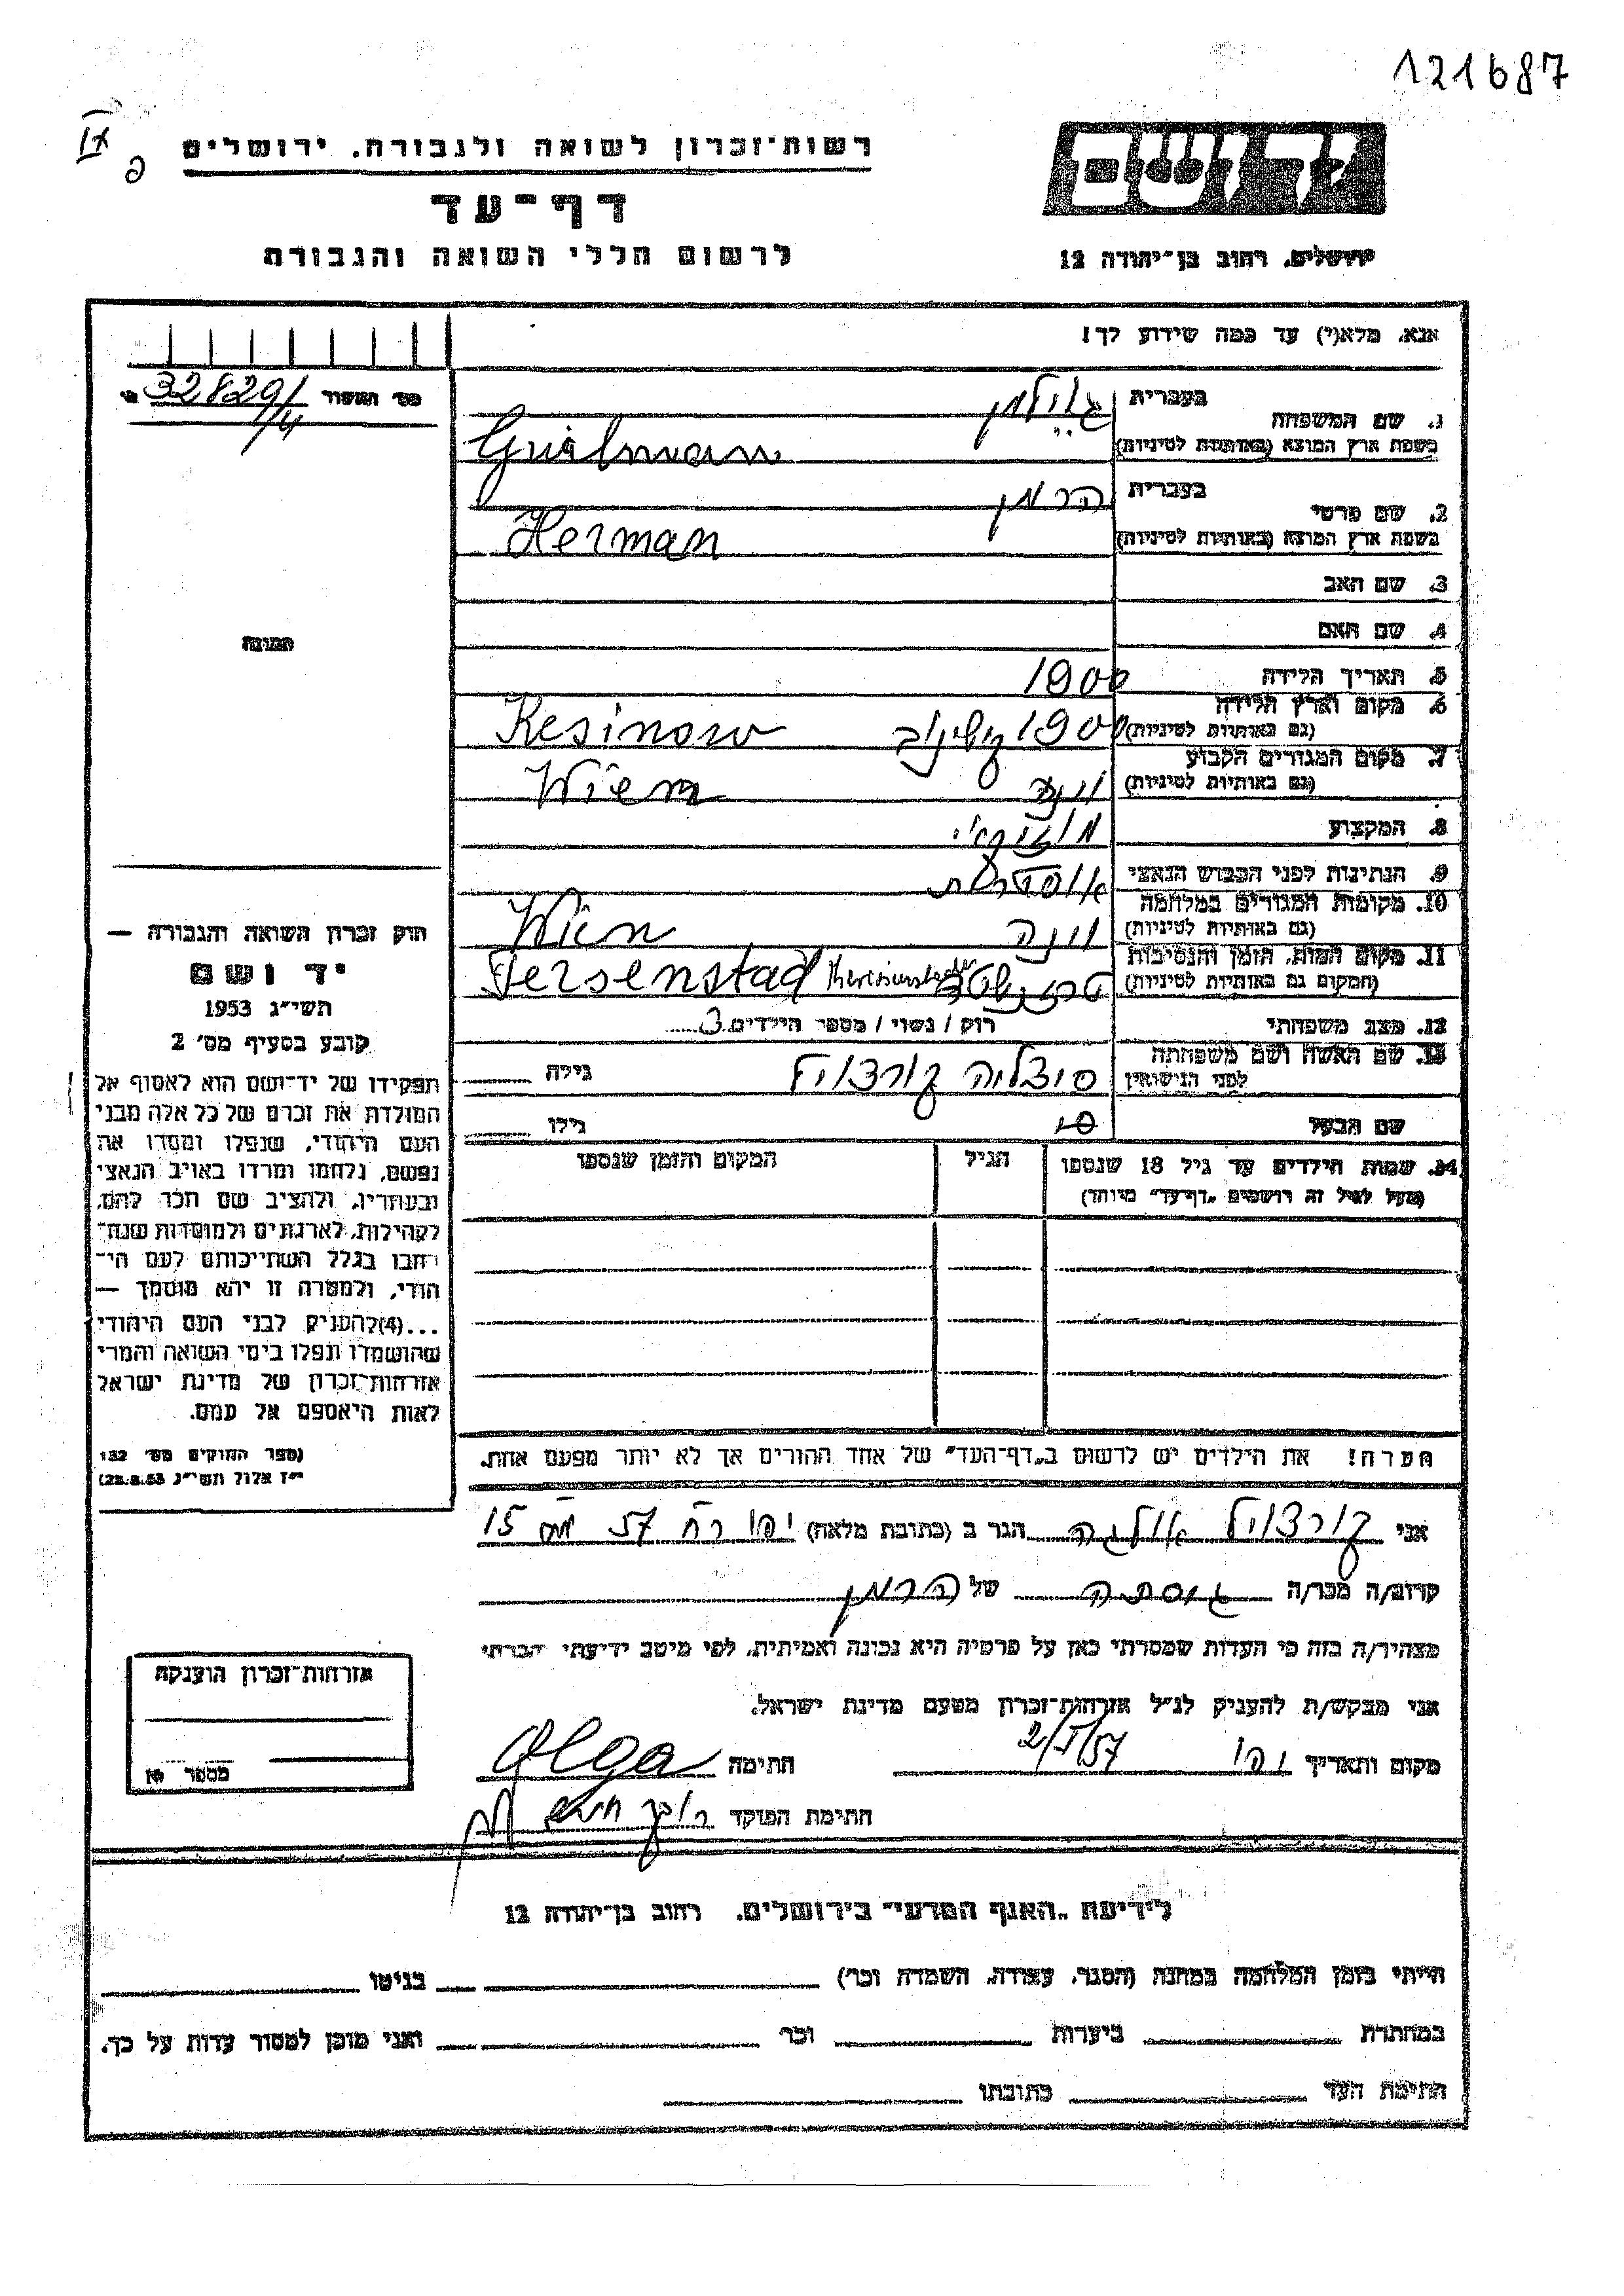 121687
רשות־זכרון לשואה ולגבורה, ירושלים
דף־עד
לרשום חללי השואה והגבורה
יד ושם
ירושלים, רחוב בן־יהודה 12
אנא, מלא(י) עד כמה שידוע לך!
32829/14
1. שם המשפחה
בעברית
בשפת ארץ המוצא (באותיות לטיניות)
2. שם פרטי
בעברית הרמן
בשפת ארץ המוצא (באותיות לטיניות) Herman
3. שם האב
4. שם האם
תמונה
5. תאריך הלידה 1900
6. מקום וארץ הלידה
(גם באותיות לטיניות) 1900 קישינוב Kesinow
7. מקום המגורים הקבוע
(גם באותיות לטיניות) Wien
8. המקצוע
9. הנתינות לפני הכבוש הנאצי
10. מקומות המגורים במלחמה
(גם באותיות לטיניות) וינה Wien
11. מקום המות, הזמן והנסיבות
(המקום גם באותיות לטיניות) Tersenstad
12. מצב משפחתי רווק / נשוי / מספר הילדים 3
13. שם האשה ושם משפחתה
לפני הנישואין גילה
שם הבעל גילו
14. שמות הילדים עד גיל 18 שנספו הגיל המקום והזמן שנספו
(מעל לגיל זה רושמים „דף־עד" מיוחד)
הערה! את הילדים יש לרשום ב„דף־העד" של אחד ההורים אך לא יותר מפעם אחת.
חוק זכרון השואה והגבורה —
יד ושם
תשי"ג 1953
קובע בסעיף מס' 2
תפקידו של יד־ושם הוא לאסוף אל
המולדת את זכרם של כל אלה מבני
העם היהודי, שנפלו ומסרו את
נפשם, נלחמו ומרדו באויב הנאצי
ובעוזריו, ולהציב שם וזכר להם,
לקהילות, לארגונים ולמוסדות שנח־
רבו בגלל השתייכותם לעם הי־
הודי, ולמטרה זו יהא מוסמך —
...(4) להעניק לבני העם היהודי
שהושמדו ונפלו בימי השואה והמרי
אזרחות־זכרון של מדינת ישראל
לאות היאספם אל עמם.
(ספר החוקים מס' 132
י"ז אלול תשי"ג 28.8.53)
אני אולגה הגר ב (כתובת מלאה) יפו רח 57 מס 15
קרוב/ה מכר/ה גיסתה של הרמן
מצהיר/ה בזה כי העדות שמסרתי כאן על פרטיה היא נכונה ואמיתית, לפי מיטב ידיעתי והכרתי
אני מבקש/ת להעניק לנ"ל אזרחות־זכרון מטעם מדינת ישראל.
מקום ותאריך יפו 2/I/57 חתימה Olga
חתימת הפוקד
אזרחות־זכרון הוענקה
מספר
לידיעת „האגף המדעי" בירושלים, רחוב בן־יהודה 12
הייתי בזמן המלחמה במחנה (הסגר, עבודה, השמדה וכו') בגיטו
במחתרת ביערות וכו' ואני מוכן למסור עדות על כך.
חתימת העד כתובתו